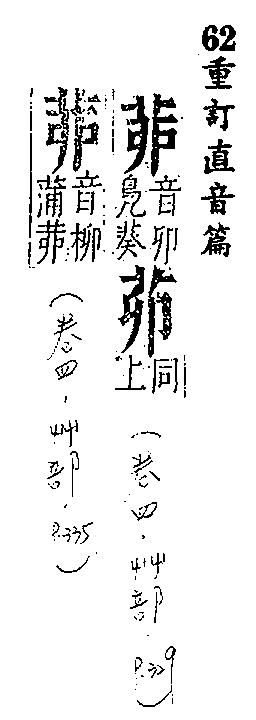 62重訂直音篇
音卯
鳧葵
茆
同
上
(卷四.艸部.P.329)
音柳
蒲茆
(卷四.艸部.P.335)